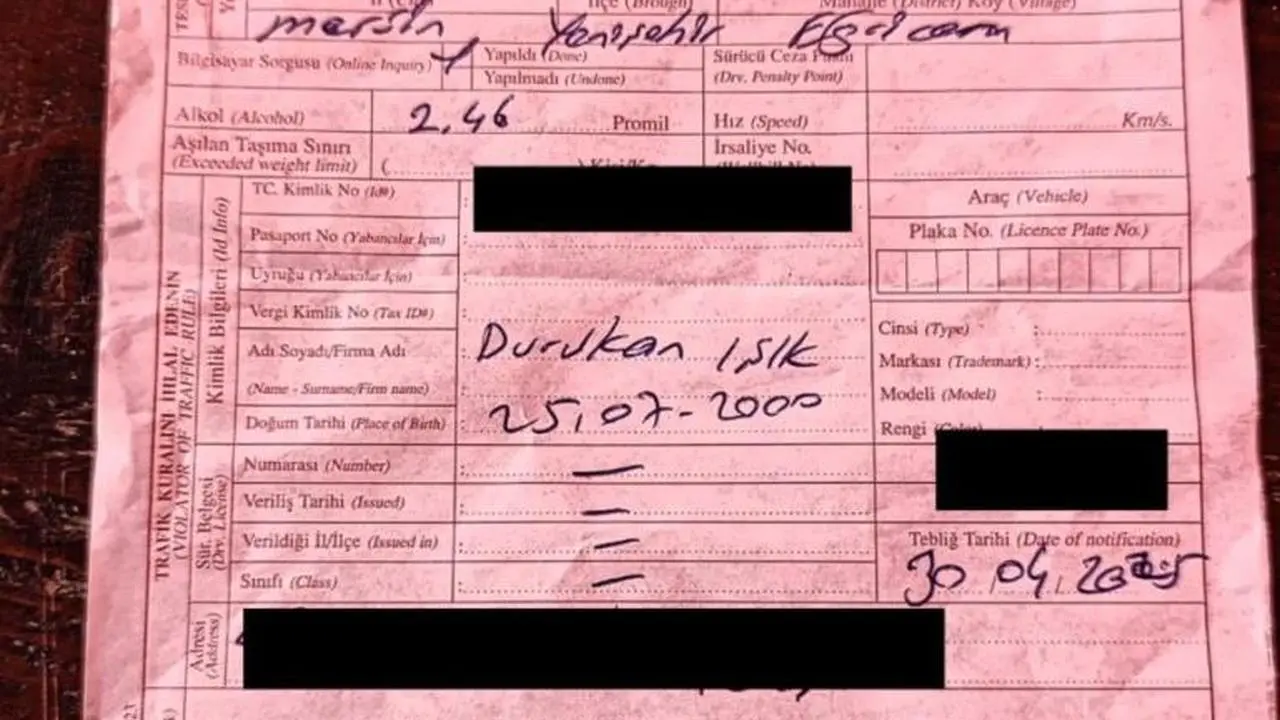 İl (City) İlçe (Brough) Mahalle (District) Köy (Village)
Mersin Yenişehir Eğriçam
Bilgisayar Sorgusu (Online Inquiry) Yapıldı (Done) Sürücü Ceza Puanı
Yapılmadı (Undone) (Drv. Penalty Point)
Alkol (Alcohol) 2,46 Promil Hız (Speed) Km/s.
Aşılan Taşıma Sınırı İrsaliye No.
(Exceeded weight limit) (
TC. Kimlik No (Id#) : Araç (Vehicle)
Pasaport No (Yabancılar İçin) Plaka No. (Licence Plate No.)
Uyruğu (Yabancılar İçin) :
Vergi Kimlik No (Tax ID#) :
Cinsi (Type) :
Adı Soyadı/Firma Adı : Durukan IŞIK Markası (Trademark) :
(Name - Surname/Firm name) Modeli (Model) :
Doğum Tarihi (Place of Birth) : 25.07-2000 Rengi (Color) :
Numarası (Number) : —
Veriliş Tarihi (Issued) : —
Verildiği İl/İlçe (Issued in) : — Tebliğ Tarihi (Date of notification)
Sınıfı (Class) : — 30.04.2025
TRAFİK KURALINI İHLAL EDENİN
(VIOLATOR OF TRAFFIC RULE)
Kimlik Bilgileri (Id Info)
Sür. Belgesi
(Drv. License)
Adresi
(Address)